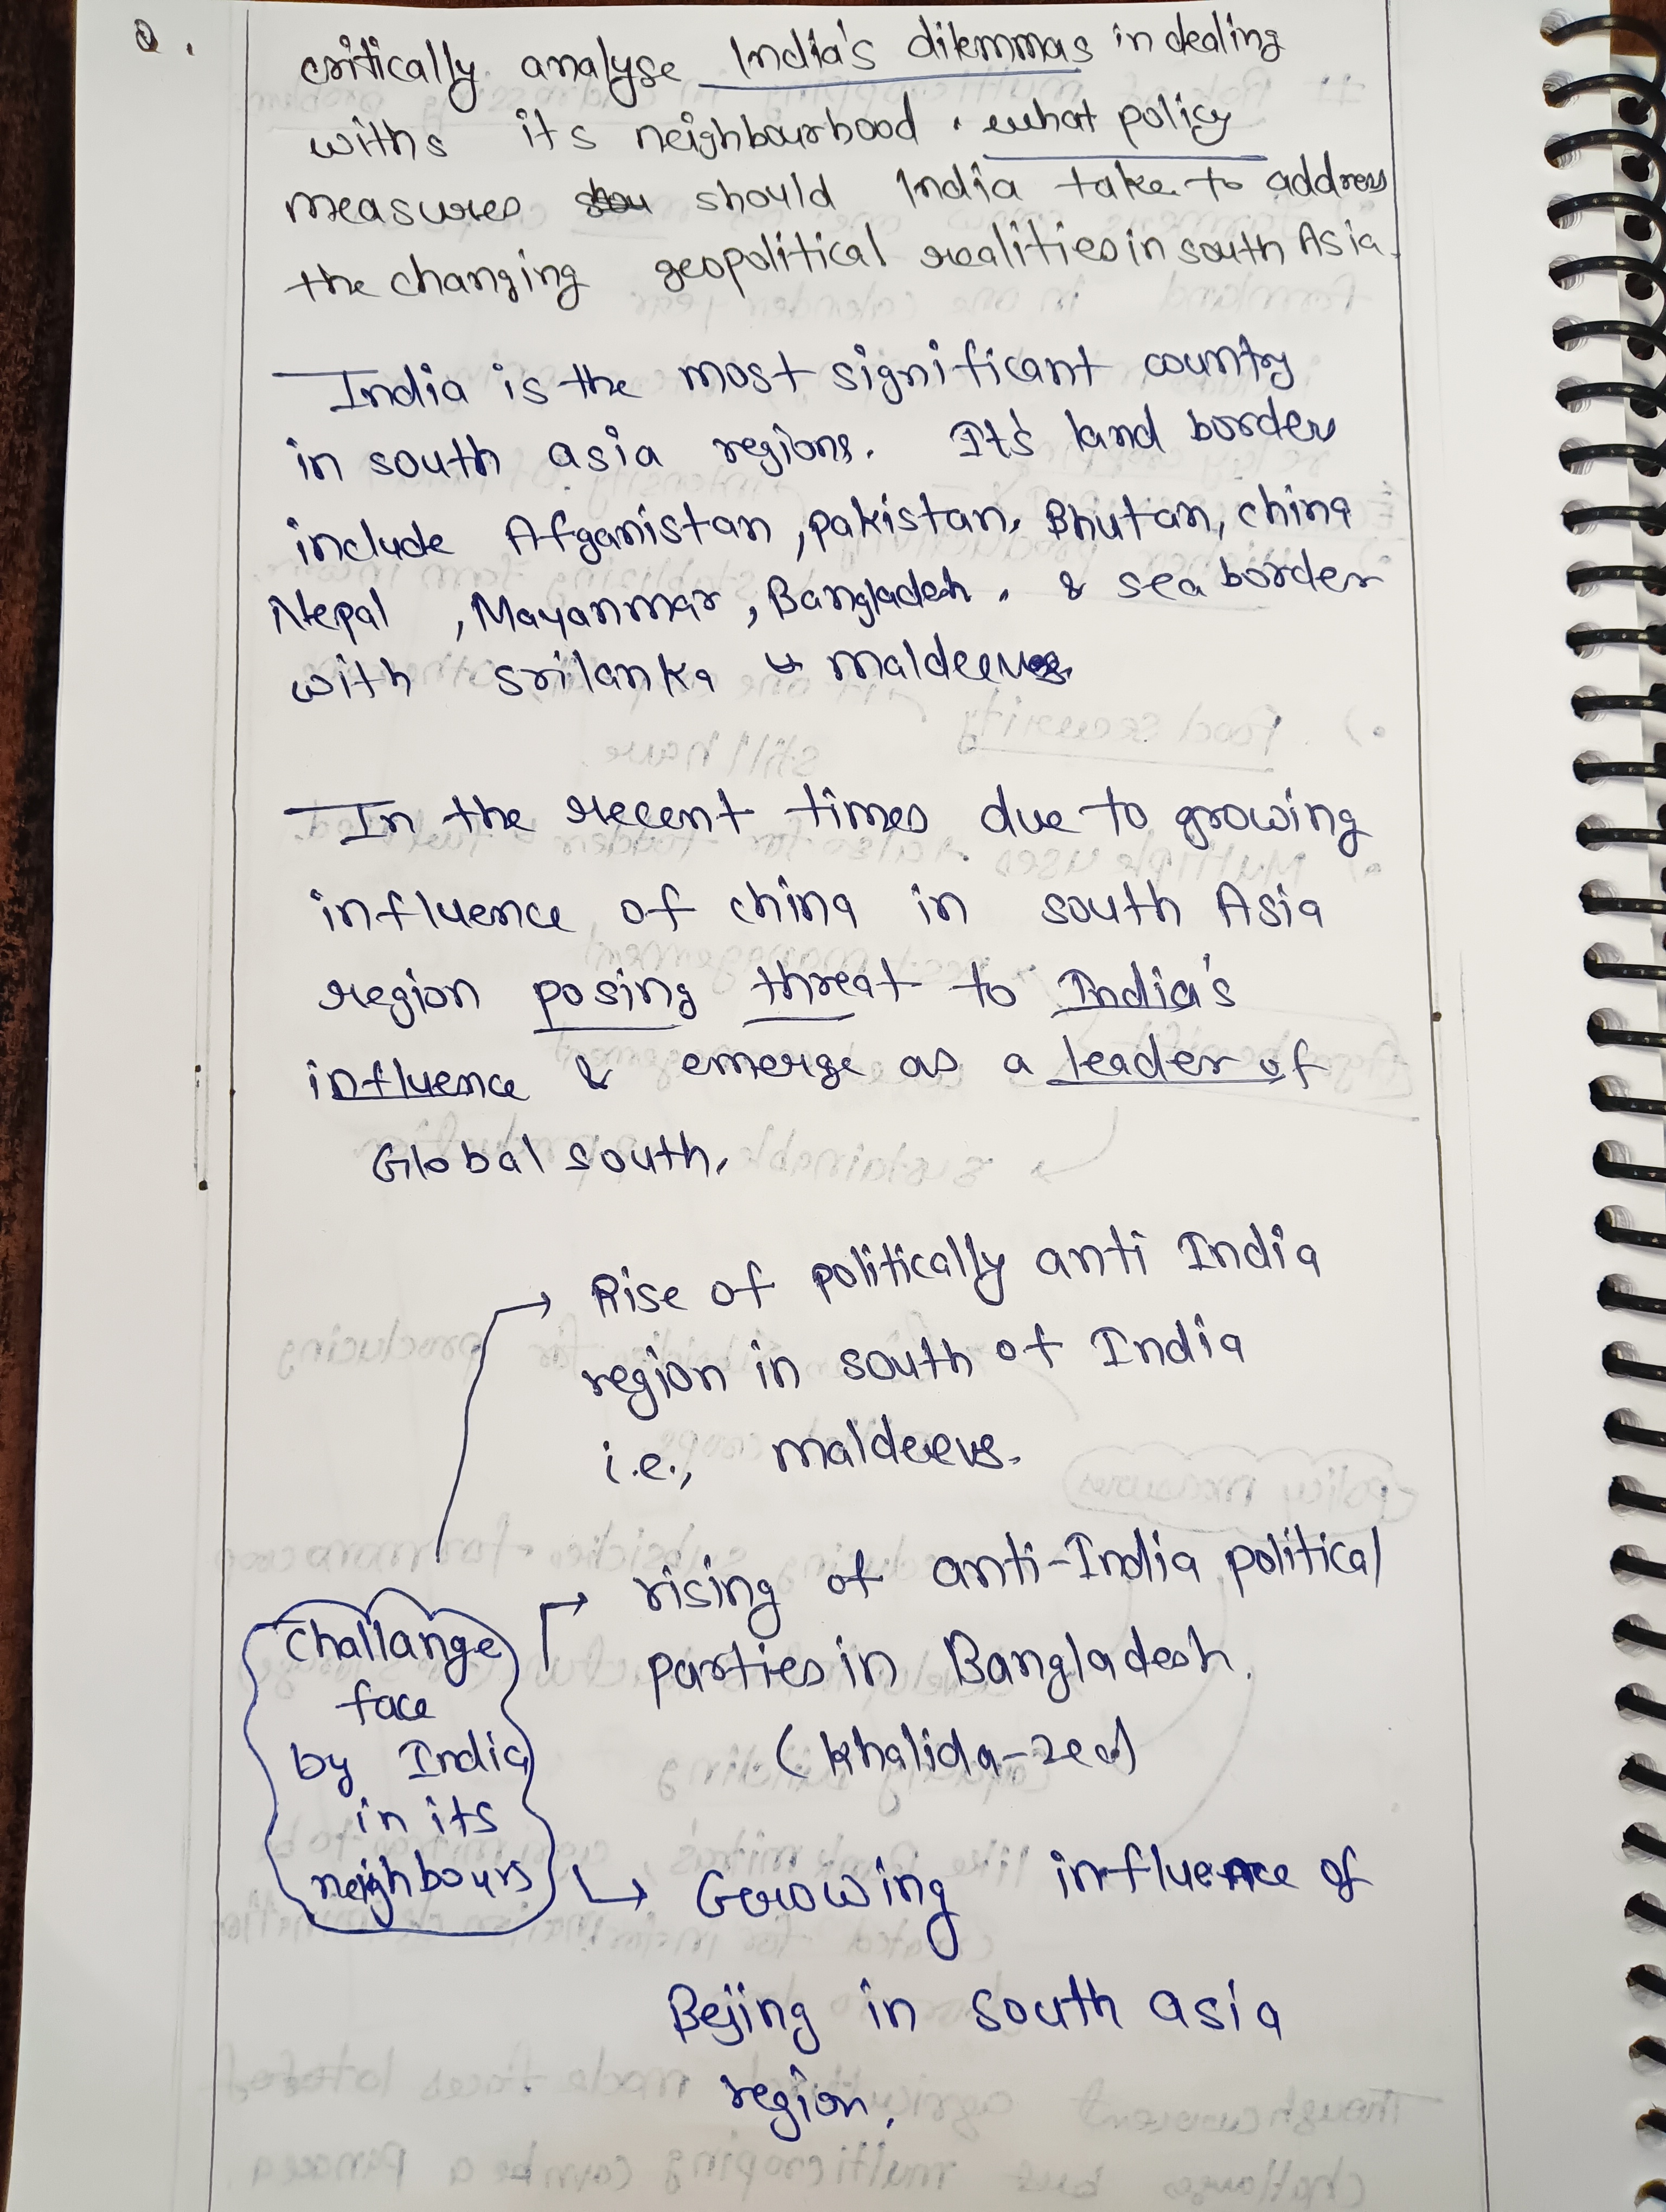 Q.
critically analyse India's dilemmas in dealing
withs its neighbourhood. what policy
measures should India take to address
the changing geopolitical realities in south Asia.
India is the most significant country
in south asia regions. It's land border
include Afganistan, pakistan, Bhutan, china
Nepal, Mayanmar, Bangladesh. & sea border
with srilanka & maldeeves
In the recent times due to growing
influence of china in south Asia
region posing threat to India's
influence & emerge as a leader of
Global south.
Rise of politically anti India
region in south of India
i.e., maldeeves.
rising of anti-India political
parties in Bangladesh.
(khalida-zea)
challange
face
by India
in its
neighbours
Growing influence of
Bejing in south asia
region.